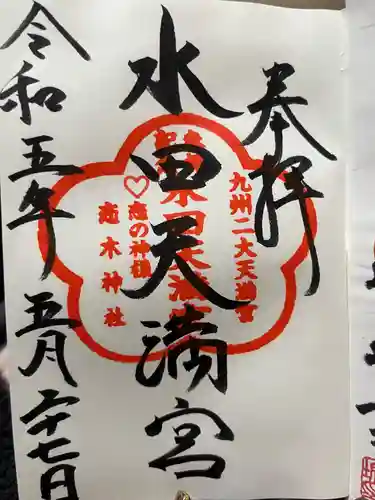 奉拝
水田天満宮
令和五年五月二十七日
九州二大天満宮
恋の神様
恋木神社